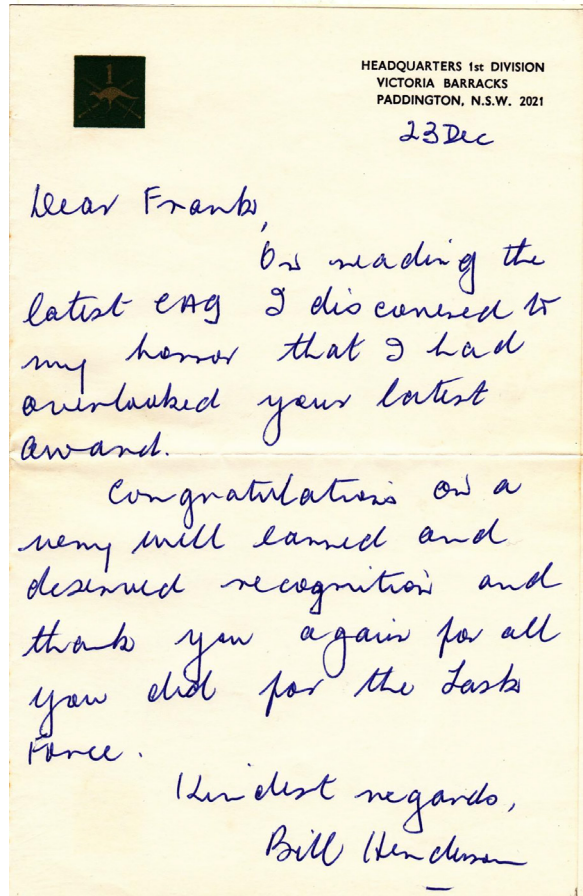 1
HEADQUARTERS 1st DIVISION
VICTORIA BARRACKS
PADDINGTON, N.S.W. 2021
23 Dec
Dear Frank,
On reading the
latest CAG I discovered to
my horror that I had
overlooked your latest
award.
Congratulations on a
very well earned and
deserved recognition and
thank you again for all
you did for the Task
Force.
Kindest regards,
Bill Henderson